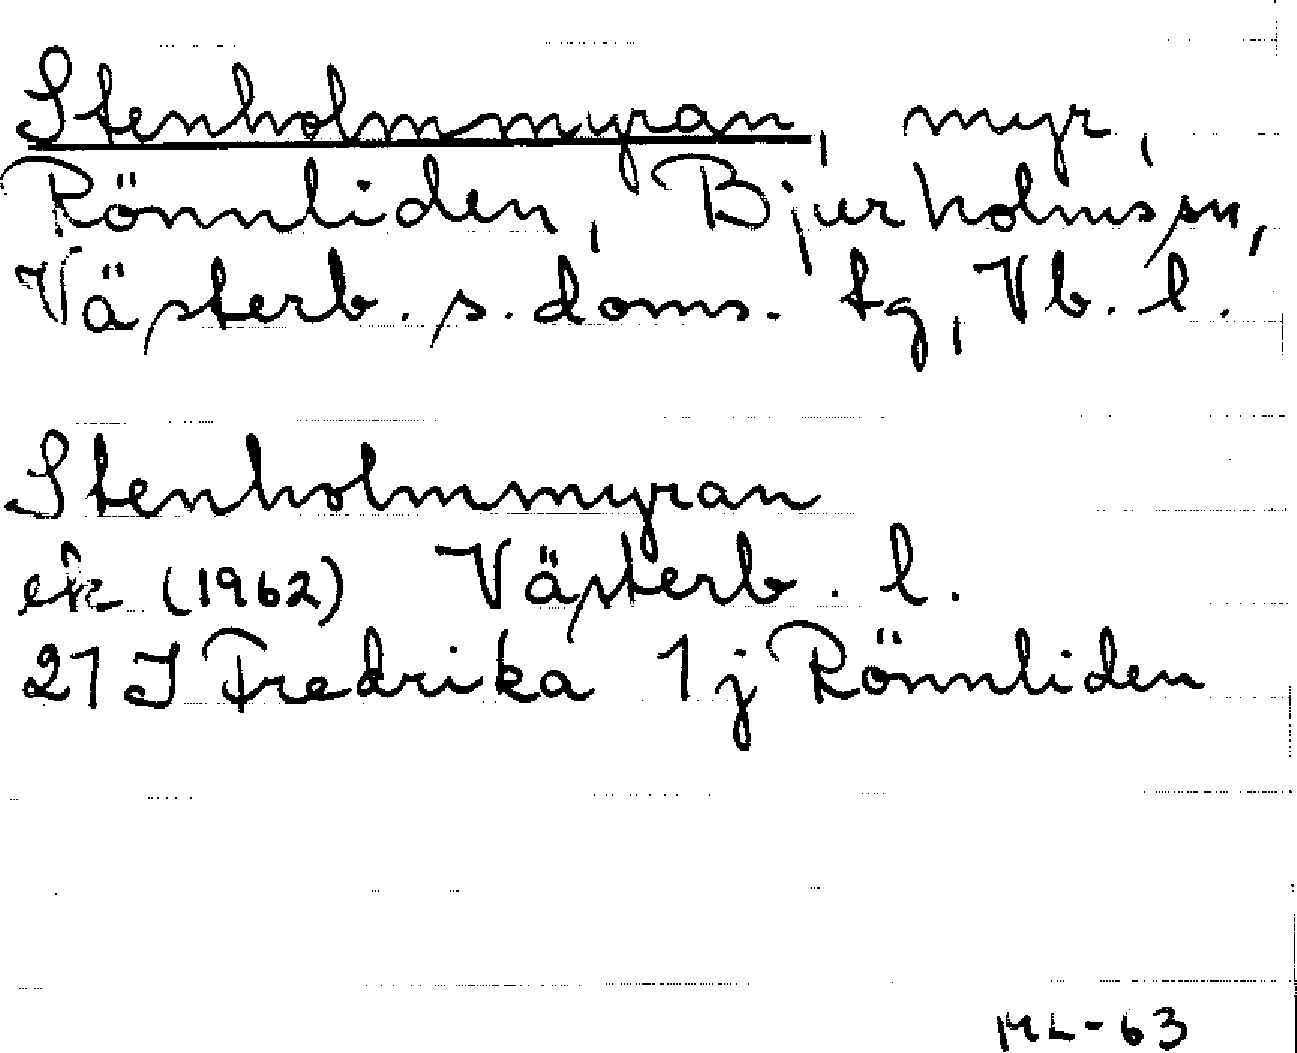 Stenholmmyran, myr,
Rönnliden, Bjurholms sn,
Västerb. s. doms. tg, Vb. l.
Stenholmmyran
ek (1962) Västerb. l.
21 J Fredrika 1 j Rönnliden
ML-63